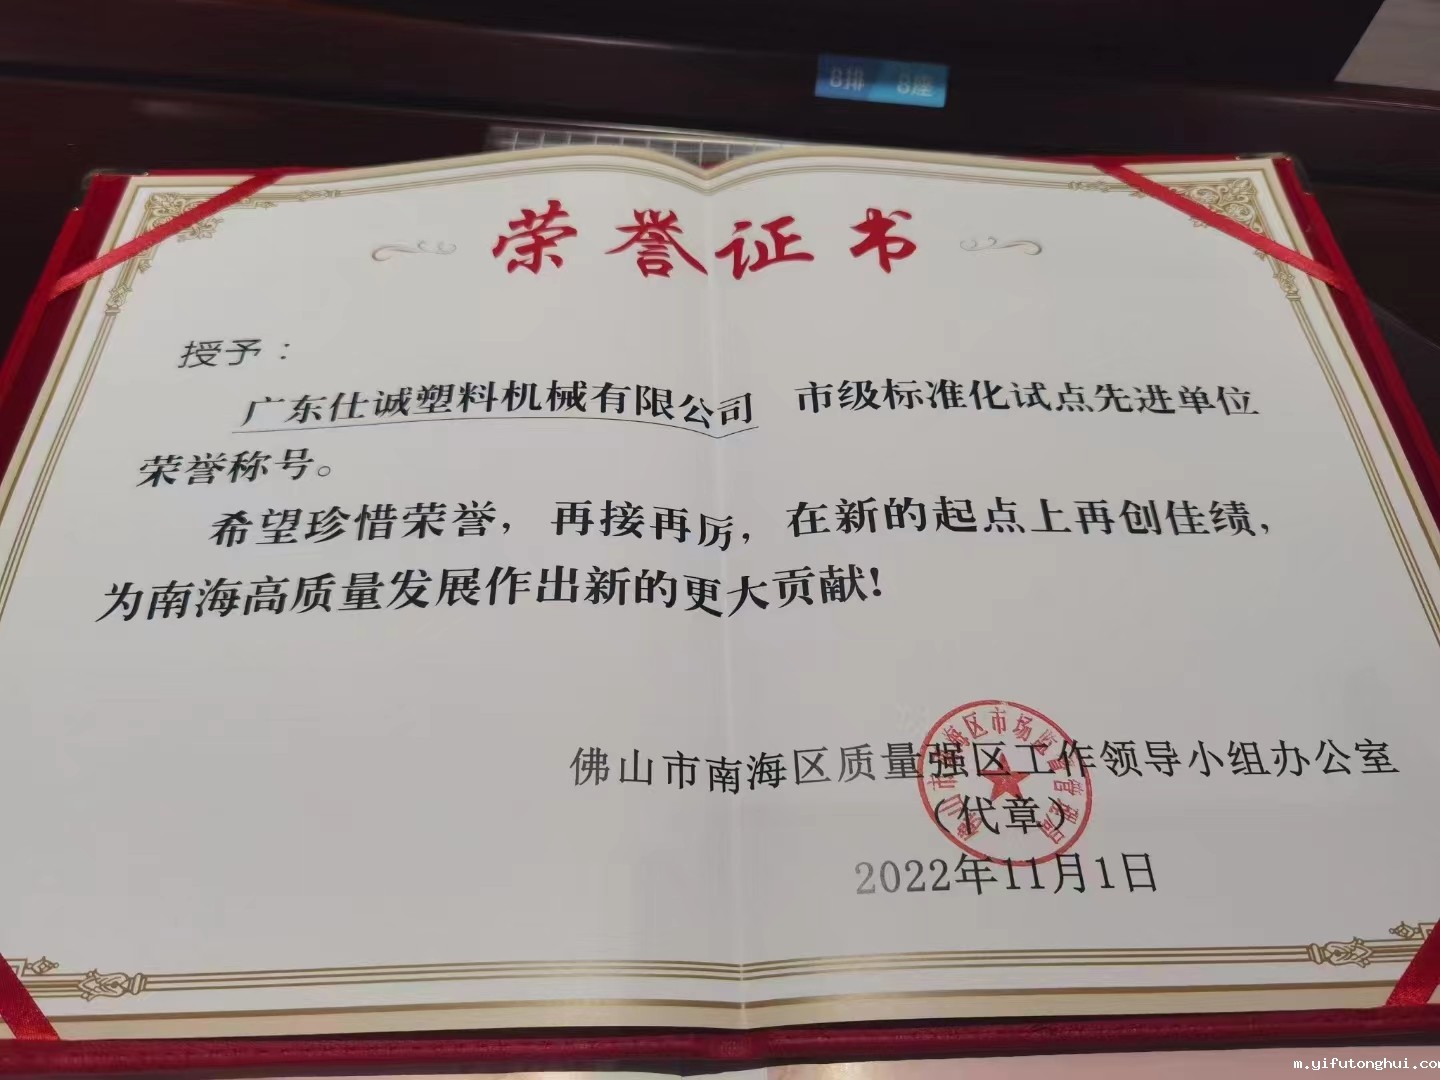 8排 8座
荣誉证书
授予：
广东仕诚塑料机械有限公司 市级标准化试点先进单位
荣誉称号。
希望珍惜荣誉，再接再厉，在新的起点上再创佳绩，
为南海高质量发展作出新的更大贡献！
佛山市南海区质量强区工作领导小组办公室
（代章）
佛山市南海区市场监督管理局
2022年11月1日
m.yifutonghui.com